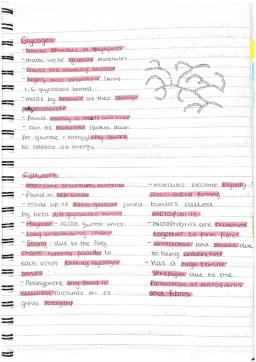 Glycogen
- similar structure to amylopectin
- made up of glucose molecules
- chains are usually shorter
- highly more branched (more
1,6 glycosidic bonds)
- made by animals as their storage
polysaccharide
- found mainly in muscle and liver
- can be hydrolysed (broken down
for glucose + energy) very quickly
to release its energy.
Cellulose
- structural material
- found in cell walls
- made up of beta glucose joined
by beta 1,4 glycosidic bonds
- Polymer - 10,000 glucose units.
- Long unbranching chains
- Strong - due to the long
chains running parallel to
each other forming hydrogen
bonds
- Arrangement only found in
cellulose accounts for its
great strength
- molecules become tightly
cross-linked forming
bundles called
microfibrils
- microfibrils are
together to form fibres
- unreactive and stable due
to being unbranched
- has a high tensile
strength due to the
formation of microfibrils
and fibres